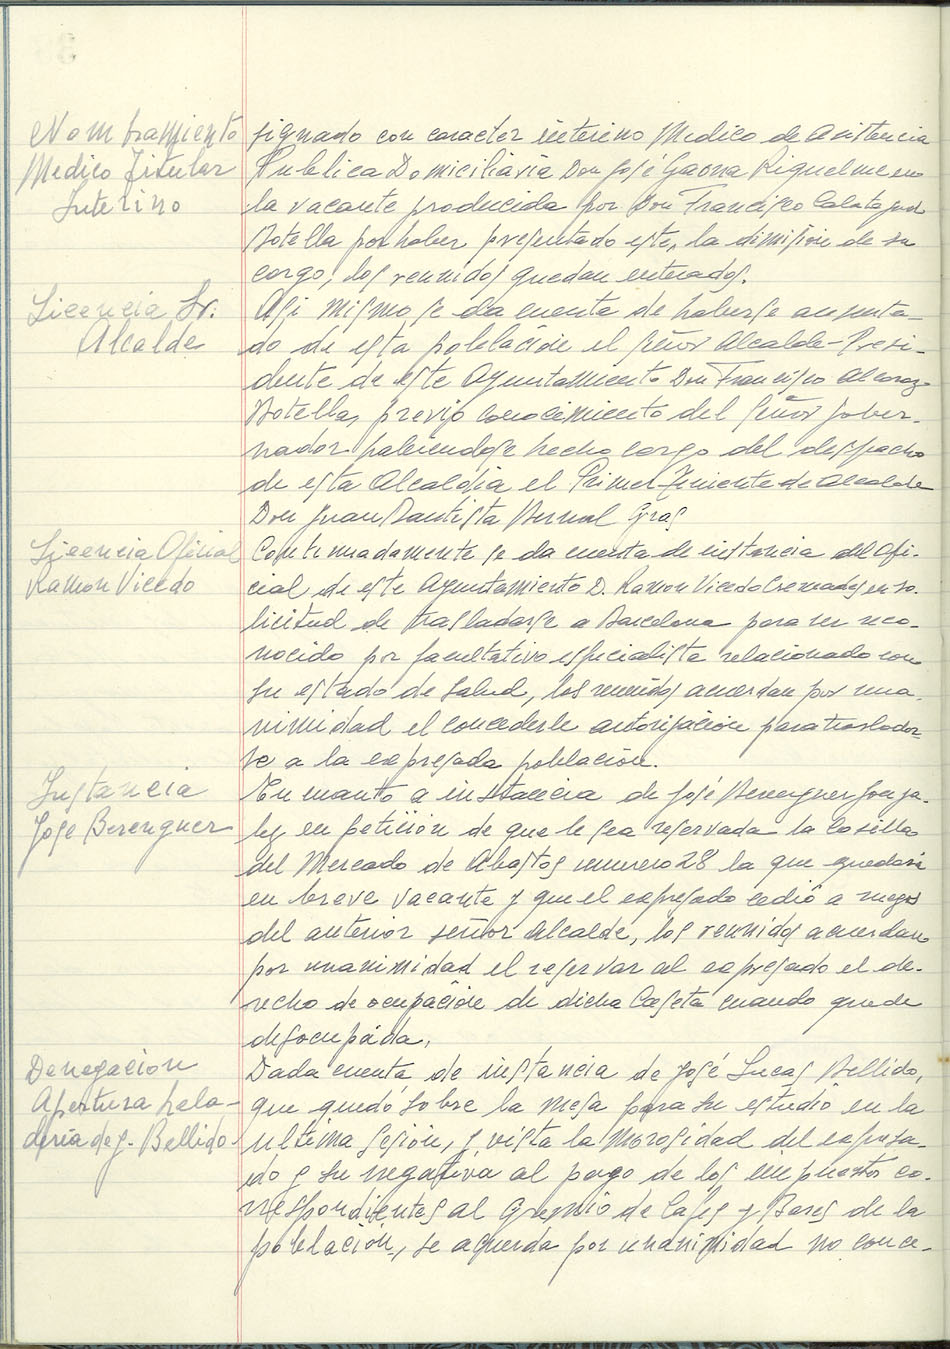 Nombramiento
Medico Titular
Interino
signado con caracter interino Medico de Asistencia
Publica Domiciliaria Don José Gaona Riquelme en
la vacante producida por Don Francisco Calatayud
Botella por haber presentado este, la dimision de su
cargo, los reunidos quedan enterados.
Licencia Sr.
Alcalde
Asi mismo se da cuenta de haberse ausenta-
do de esta población el señor Alcalde-Presi-
dente de este Ayuntamiento Don Francisco Alcaraz
Botella, previo conocimiento del señor Gober-
nador habiendose hecho cargo del despacho
de esta Alcaldia el Primer Teniente de Alcalde
Don Juan Bautista Bernal Gras
Licencia Oficial
Ramon Vicedo
Continuadamente se da cuenta de instancia del Ofi-
cial de este Ayuntamiento D. Ramon Vicedo Cremades en so-
licitud de trasladarse a Barcelona para ser reco-
nocido por facultativo especialista relacionado con
su estado de salud, los reunidos acuerdan por una-
nimidad el concederle autorización para traslador-
se a la expresada población.
Instancia
Jose Berenguer
En cuanto a instancia de José Berenguer Gonza-
lez en petición de que le sea reservada la Casilla
del Mercado de Abastos numero 28 la que quedará
en breve vacante y que el expresado cedió a ruegos
del anterior señor Alcalde, los reunidos acuerdan
por unanimidad el reservar al expresado el de-
recho de ocupación de dicha Caseta cuando quede
desocupada.
Denegación
Apertura hela-
deria de J. Bellido
Dada cuenta de instancia de José Lucas Bellido,
que quedó sobre la mesa para su estudio en la
ultima sesión, y vista la morosidad del expresa-
do y su negativa al pago de los impuestos co-
rrespondientes al Gremio de Cafes y Bares de la
población, se acuerda por unanimidad no conce-